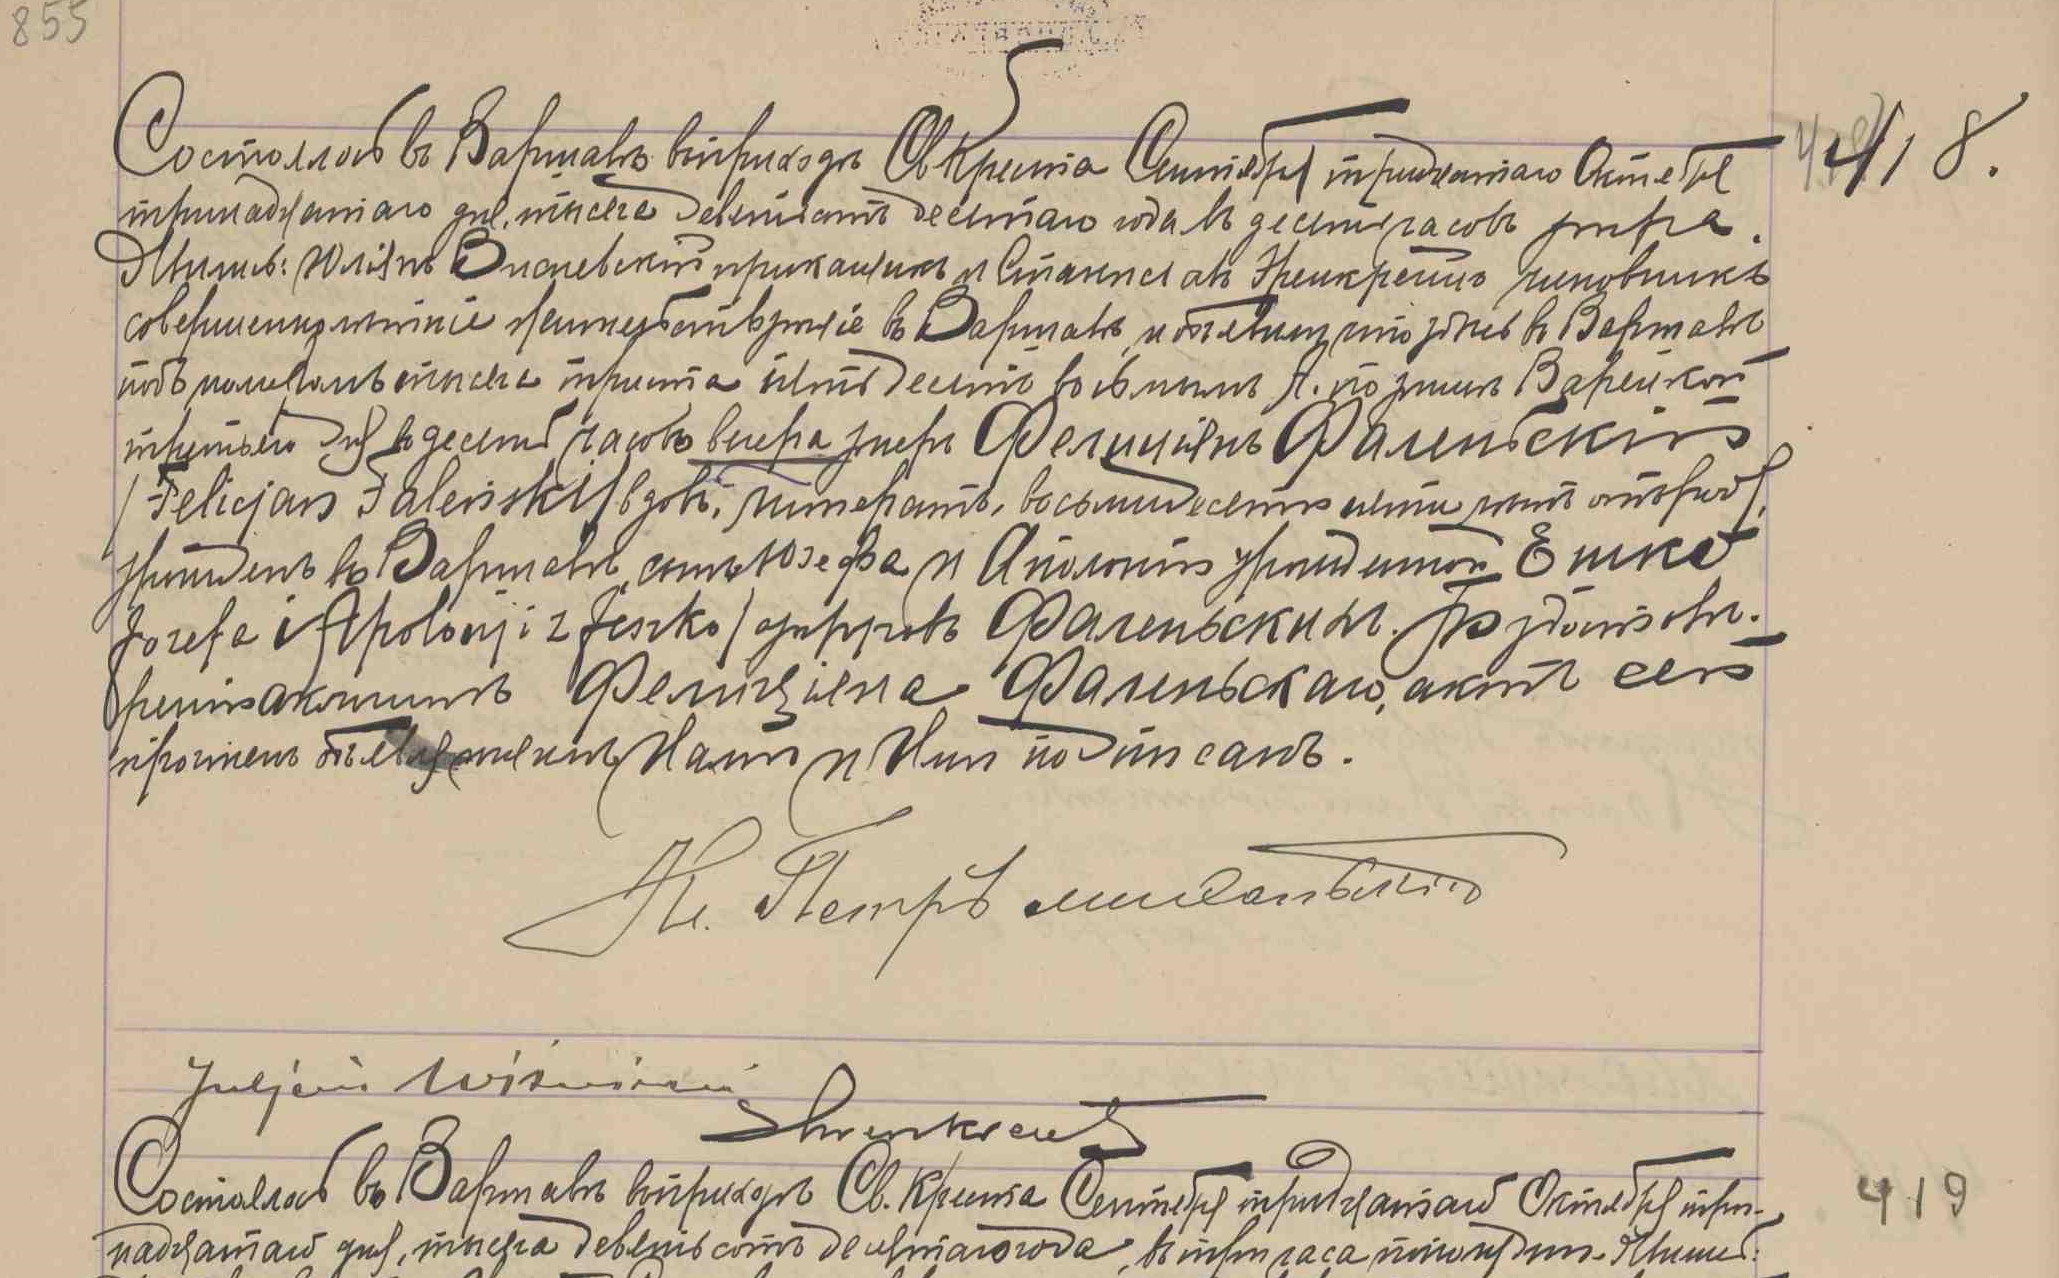 855
Состоялось въ Варшавѣ въ приходѣ Св Креста Сентября тридцатаго Октября
418.
тринадцатаго дня, тысяча девятьсотъ десятаго года въ десять часовъ утра.
Явились: Юліянъ Висневскій прикащикъ и Станиславъ чиновникъ
совершеннолѣтніе жительствующіе въ Варшавѣ, и объявили что здѣсь въ Варшавѣ
подъ тысяча триста пятьдесятъ восьмымъ А. по улицѣ Варецкой
третьего дня въ десять часовъ вечера умеръ Фелиціянъ Фаленьскій
/Felicjan Faleński/ вдов., литератъ, восьмидесяти пяти лѣтъ отъ роду,
урожденъ въ Варшавѣ, сынъ Юзефа и Аполоніи урожденной Ешко
Jozefa i Apolonji z Jeszko/ супруговъ Фаленьскихъ. По удостовѣ-
реніи о кончинѣ Фелиціяна Фаленьскаго, актъ сей
прочтенъ объявляющимъ Нами и Ими подписанъ.
Кс. Петръ
Juljan Wiśniewski
Состоялось въ Варшавѣ въ приходѣ Св. Креста Сентября тридцатаго Октября три-
419
надцатаго дня, тысяча девятьсотъ десятаго года, въ три часа пополудни. Явились: